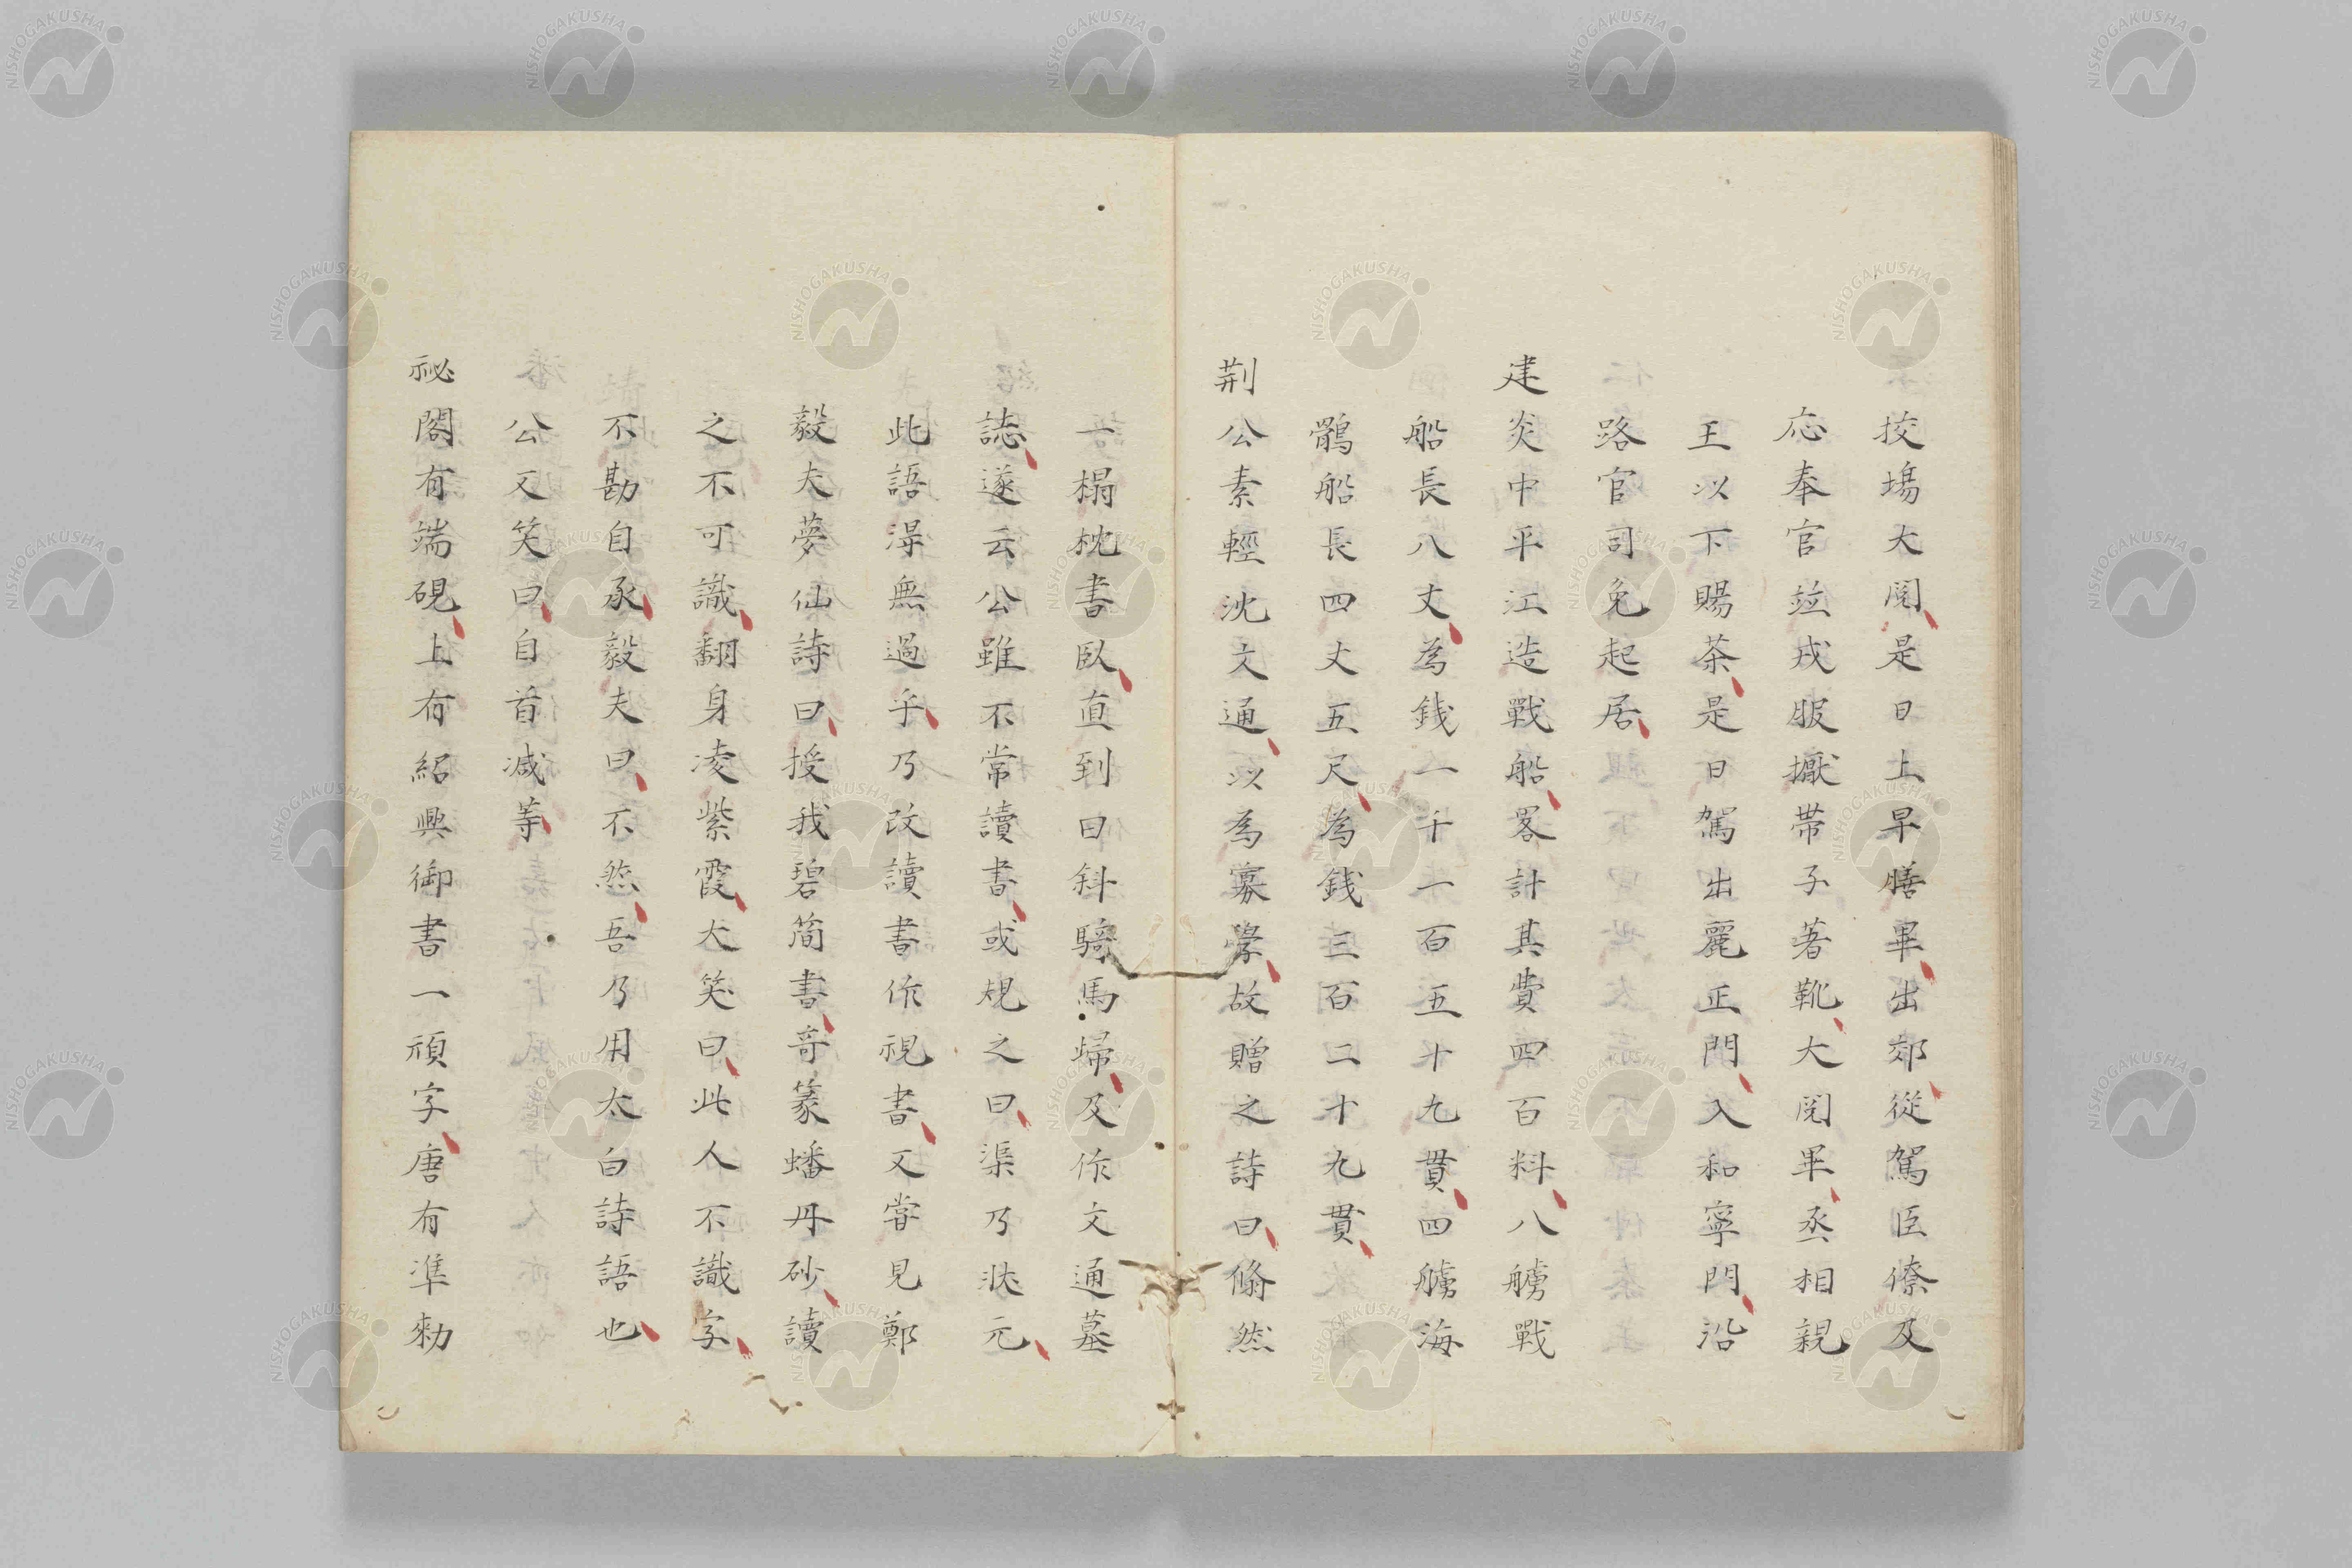 挍塲大閲是日上早膳畢出郊從駕臣僚及
応奉官並戎服擫帯子著靴大閲畢丞相親
王以下賜茶是日駕出麗正門入和寧門沿
路官司免起居
建炎中平江造戰船畧計其費四百料八艣戰
船長八丈為錢一千一百五十九貫四艣海
鶻船長四丈五尺為錢三百二十九貫
荆公素輕沈文通以為寡學故贈之詩曰翛然
一榻枕書臥直到日斜騎馬歸及作文通墓
誌遂云公雖不常讀書或規之曰渠乃狀元
此語淂無過乎乃改讀書作視書又甞見鄭
毅夫夢仙詩曰授我碧簡書奇篆蟠丹砂讀
之不可識翻身凌紫霞大笑曰此人不識字
不勘自承毅夫曰不然吾乃用太白詩語也
公又笑曰自首减等
祕閣有端硯上有紹興御書一頑字唐有準勑
NISHOGAKUSHA